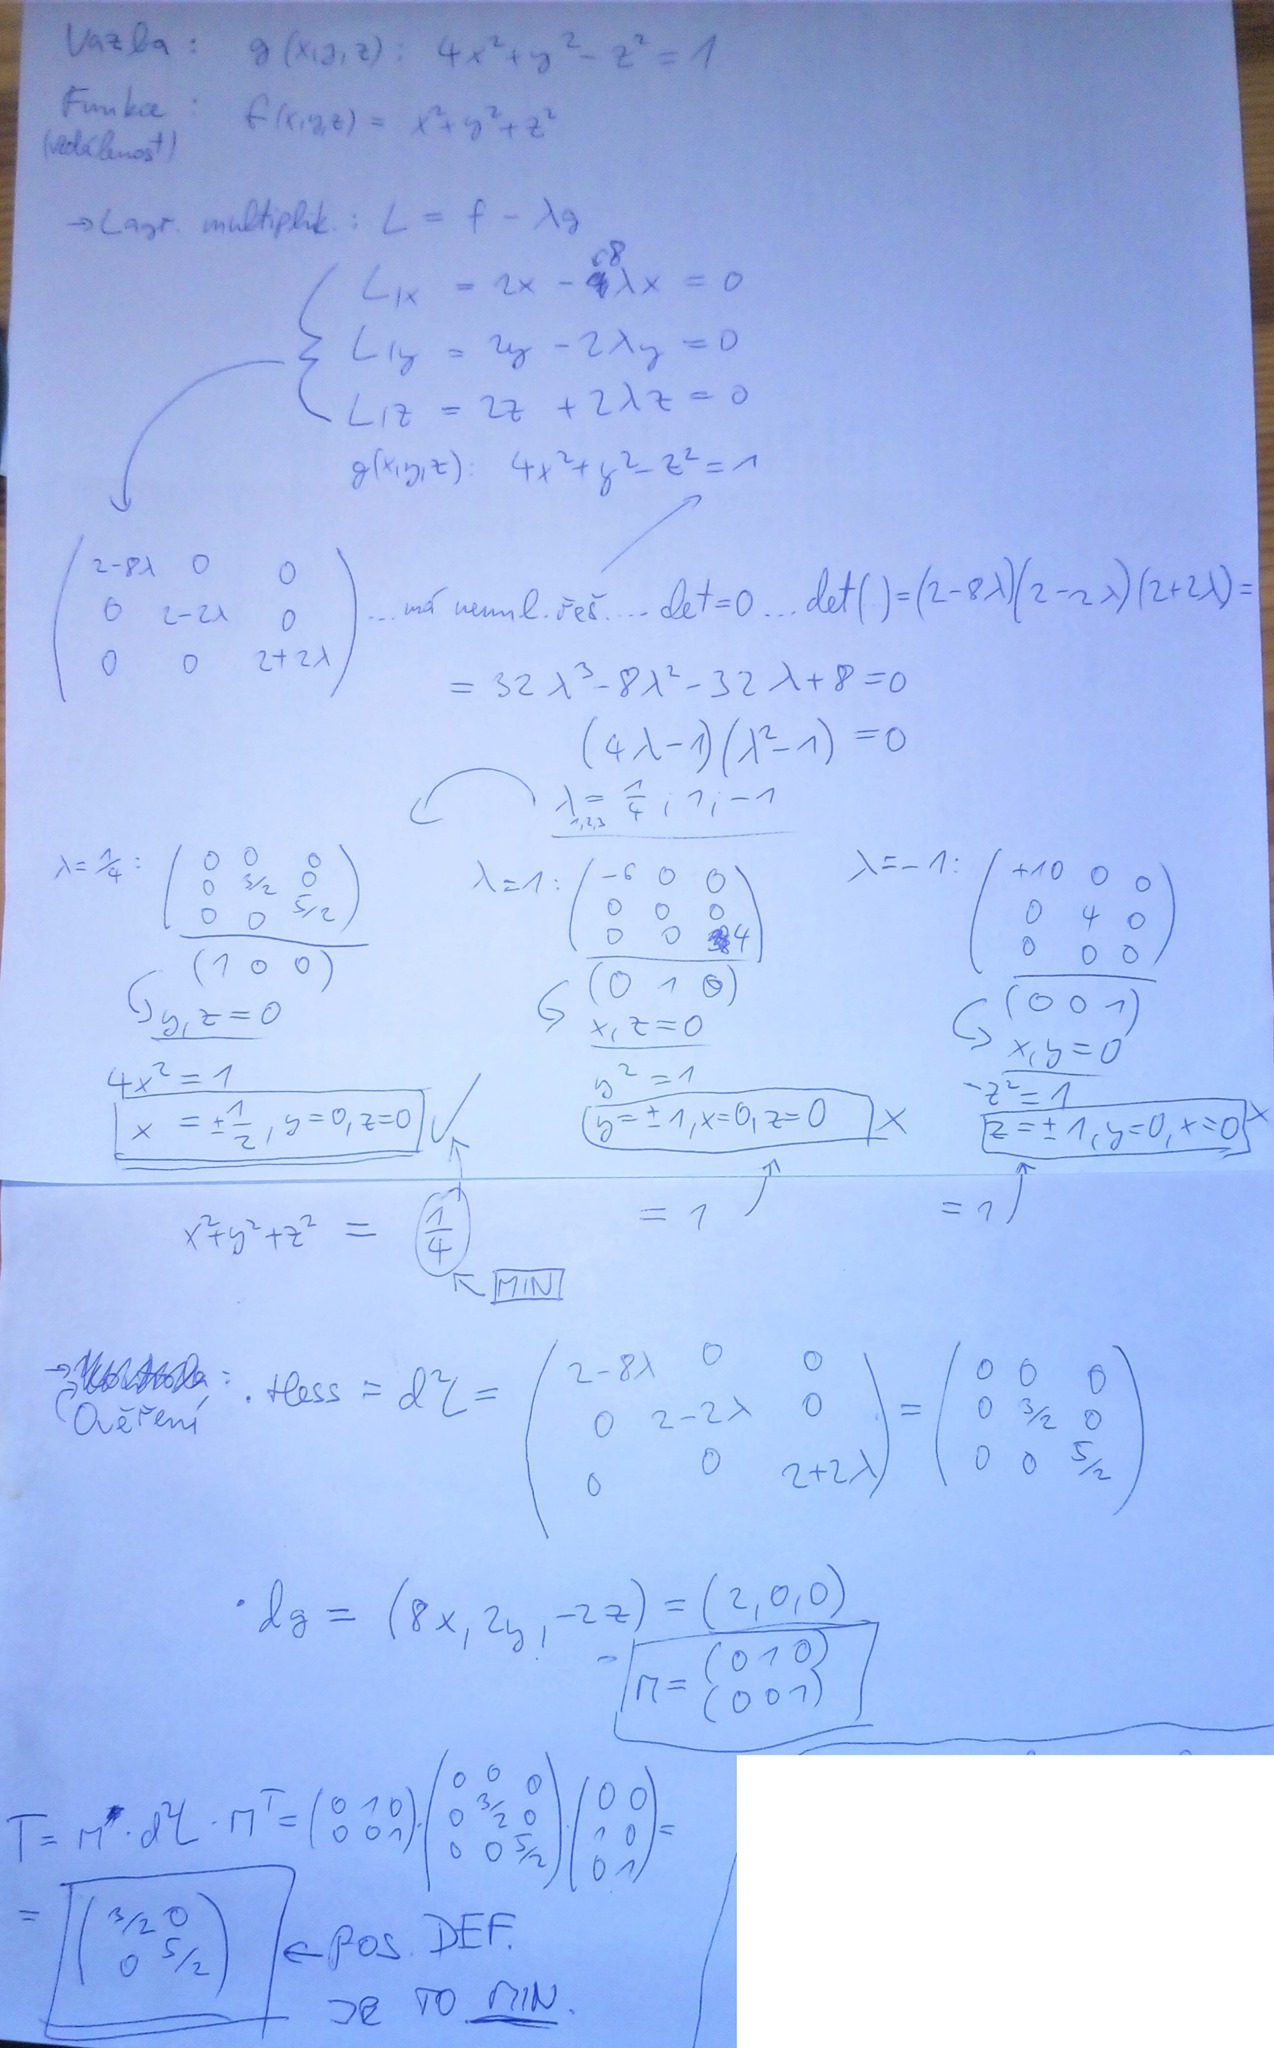 Vazba : g(x,y,z) : 4x²+y²-z² = 1
Funkce : f(x,y,z) = x²+y²+z²
(vzdálenost)
→ Lagr. multiplik. : L = f - λg
L,x = 2x - 8λx = 0
L,y = 2y - 2λy = 0
L,z = 2z + 2λz = 0
g(x,y,z) : 4x²+y²-z² = 1
(2-8λ 0 0
0 2-2λ 0
0 0 2+2λ) ... má nenul. řeš. ... det=0 ... det( ) = (2-8λ)(2-2λ)(2+2λ) =
= 32λ³-8λ²-32λ+8 = 0
(4λ-1)(λ²-1) = 0
λ1,2,3 = 1/4 ; 1 ; -1
λ=1/4 : (0 0 0
0 3/2 0
0 0 5/2)
(1 0 0)
y, z = 0
4x² = 1
x = ±1/2, y=0, z=0 ✓
λ=1 : (-6 0 0
0 0 0
0 0 4)
(0 1 0)
x, z = 0
y² = 1
y = ±1, x=0, z=0 x
λ=-1 : (+10 0 0
0 4 0
0 0 0)
(0 0 1)
x, y = 0
-z² = 1
z = ±1, y=0, x=0 x
x²+y²+z² = 1/4 = 1 = 1
MIN
Ověření : · Hess = d²L = (2-8λ 0 0
0 2-2λ 0
0 0 2+2λ) = (0 0 0
0 3/2 0
0 0 5/2)
· dg = (8x, 2y, -2z) = (2,0,0)
M = (0 1 0)
(0 0 1)
T = M · d²L · Mᵀ = (0 1 0
0 0 1) · (0 0 0
0 3/2 0
0 0 5/2) · (0 0
1 0
0 1) =
= (3/2 0
0 5/2) ← POS. DEF.
JE TO MIN.